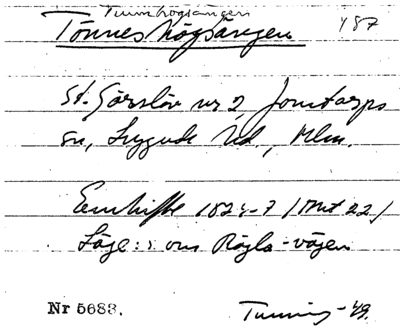 Tunnhögsängen
Tönneshögsängen 487
St. Görslöv nr 2, Jonstorps
sn, Luggude hd, Mlm.
Enskifte 1824-7 (Akt 22)
Läge: s. om Rögla-vägen
Nr 5683. Tuning -49.